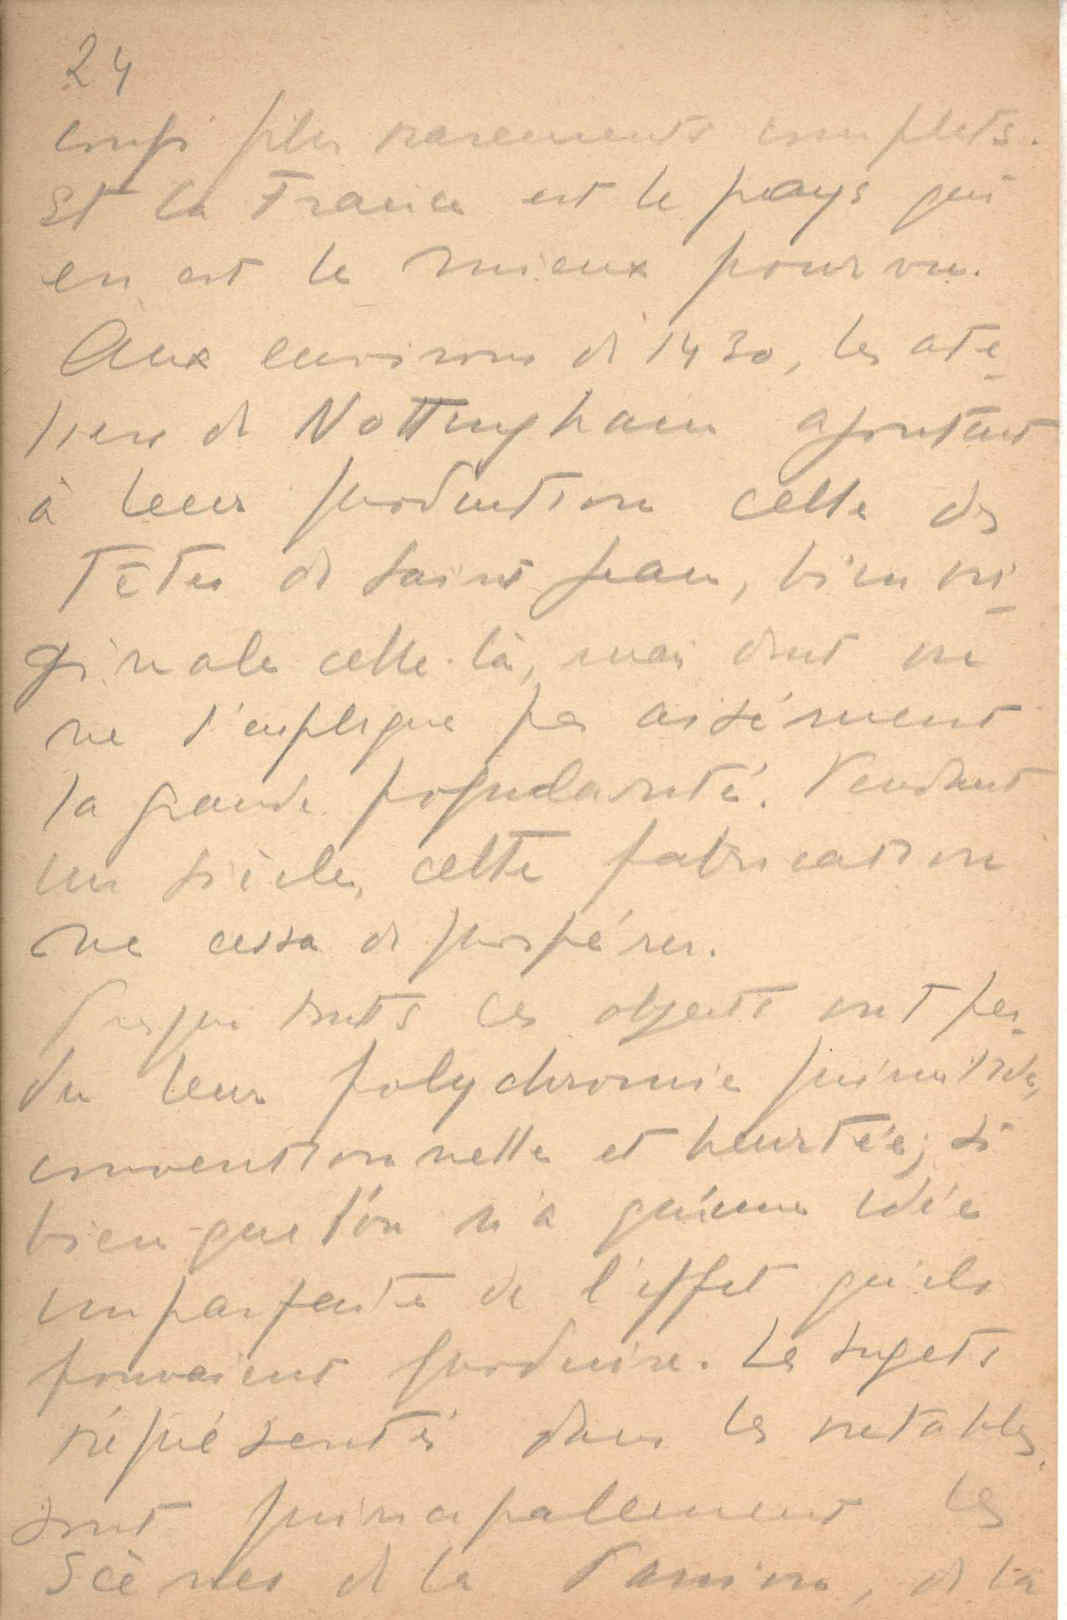 24
coup plus rarements complets.
Et la France est le pays qui
en est le mieux pourvu.
Aux environs de 1430, les ate-
liers de Nottingham ajoutent
à leur production celle des
Têtes de Saint Jean, bien ori-
ginale celle-là, mais dont on
ne s'explique pas aisément
la grande popularité. Pendant
un siècle, cette fabrication
ne cessa de prospérer.
Presque touts ces objets ont per-
du leur polychromie primitive,
conventionnelle et heurtée; si
bien que l'on n'a qu'une idée
imparfaite de l'effet qu'ils
pouvaient produire. Les sujets
réprésentés dans les retables,
sont principallement les
Scènes de la Passion, de la